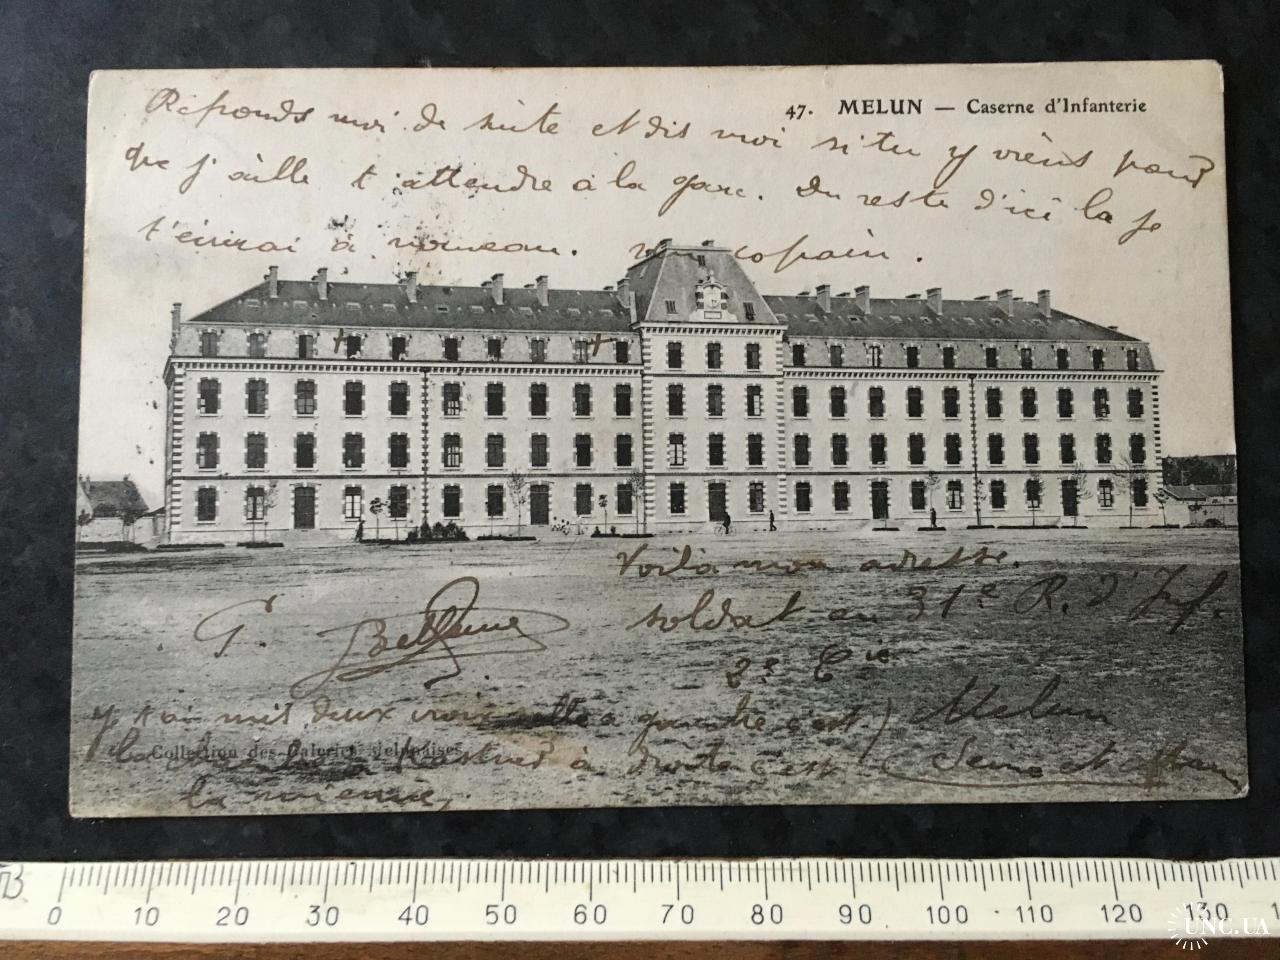 47. MELUN — Caserne d'Infanterie
Réponds moi de suite et dis moi si tu y viens pour
que j'aille t'attendre à la gare. Du reste d'ici la je
t'écrirai à nouveau. copain.
Voilà mon adresse.
soldat au 31e R. d'Inf.
G.
2e Cie
j'y ai mis deux croix celle a gauche c'est
Melun
Collection des Galeries Melunaises
à droite c'est
(Seine et Marne)
la mienne,
0 10 20 30 40 50 60 70 80 90 100 110 120 130
UNC.UA